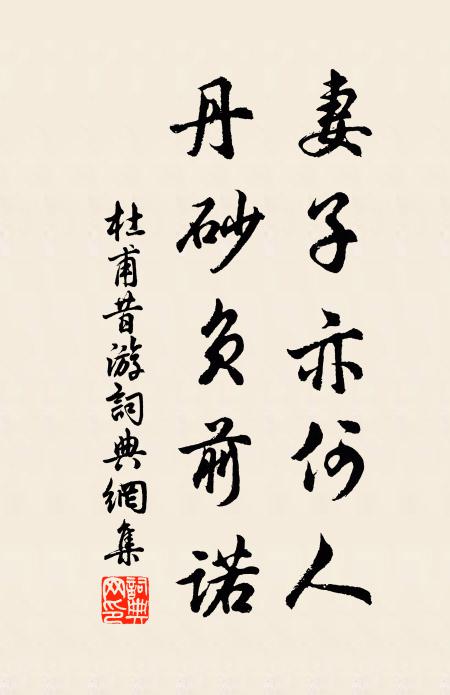 妻子亦何人
丹砂負前諾
杜甫昔游詞典網集
詞典網印